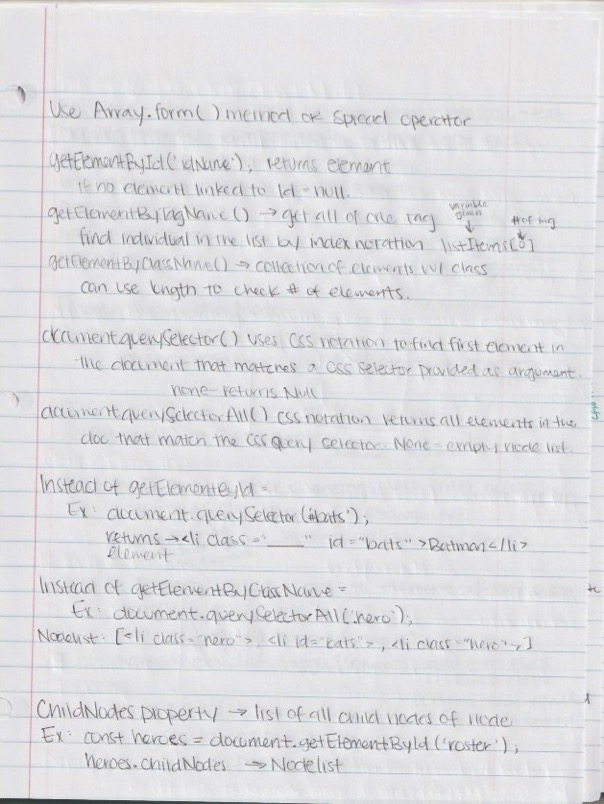 Use Array.form() method or spread operator
getElementById('idName'); returns element
if no element linked to Id = null.
getElementByTagName() → get all of one tag
variable given ↓
# of tag ↓
find individual in the list by index notation listItems[0]
getElementByClassName() → collection of elements w/ class
can use length to check # of elements.
document.querySelector() uses CSS notation to find first element in
the document that matches a CSS selector provided as argument.
none - returns Null
document.querySelectorAll() CSS notation returns all elements in the
doc that match the CSS query selector. None = empty node list.
Instead of getElementById =
Ex: document.querySelector('#bats');
returns → <li class="____" id="bats">Batman</li>
element
Instead of getElementByClassName =
Ex: document.querySelectorAll('.hero');
Nodelist: [<li class="hero">, <li id="bats">, <li class="hero">]
ChildNodes property → list of all child nodes of node.
Ex: const heroes = document.getElementById('roster');
heroes.childNodes → Nodelist